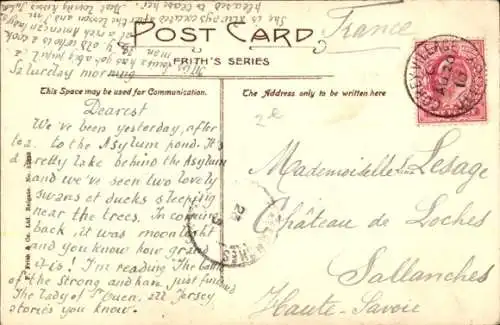 France
POST CARD
FRITH'S SERIES
This Space may be used for Communication.
The Address only to be written here
Saturday morning
Dearest
We've been yesterday, after
tea. to the Asylum pond. It's a
pretty lake behind the Asylum
and we've seen two lovely
swans at ducks sleeping
near the trees. In coming
back it was moonlight
and you know how grand
it is! I'm reading The battle
of the Strong and han just finished
The lady of St Ouen, all Jersey
stories you know.
She is always excited after
the lesson and I'm
pleased to leave her.
Best loving kisses Julia
of a rich American lady
Mademoiselle Lesage
Château de Loches
Sallanches
Haute-Savoie